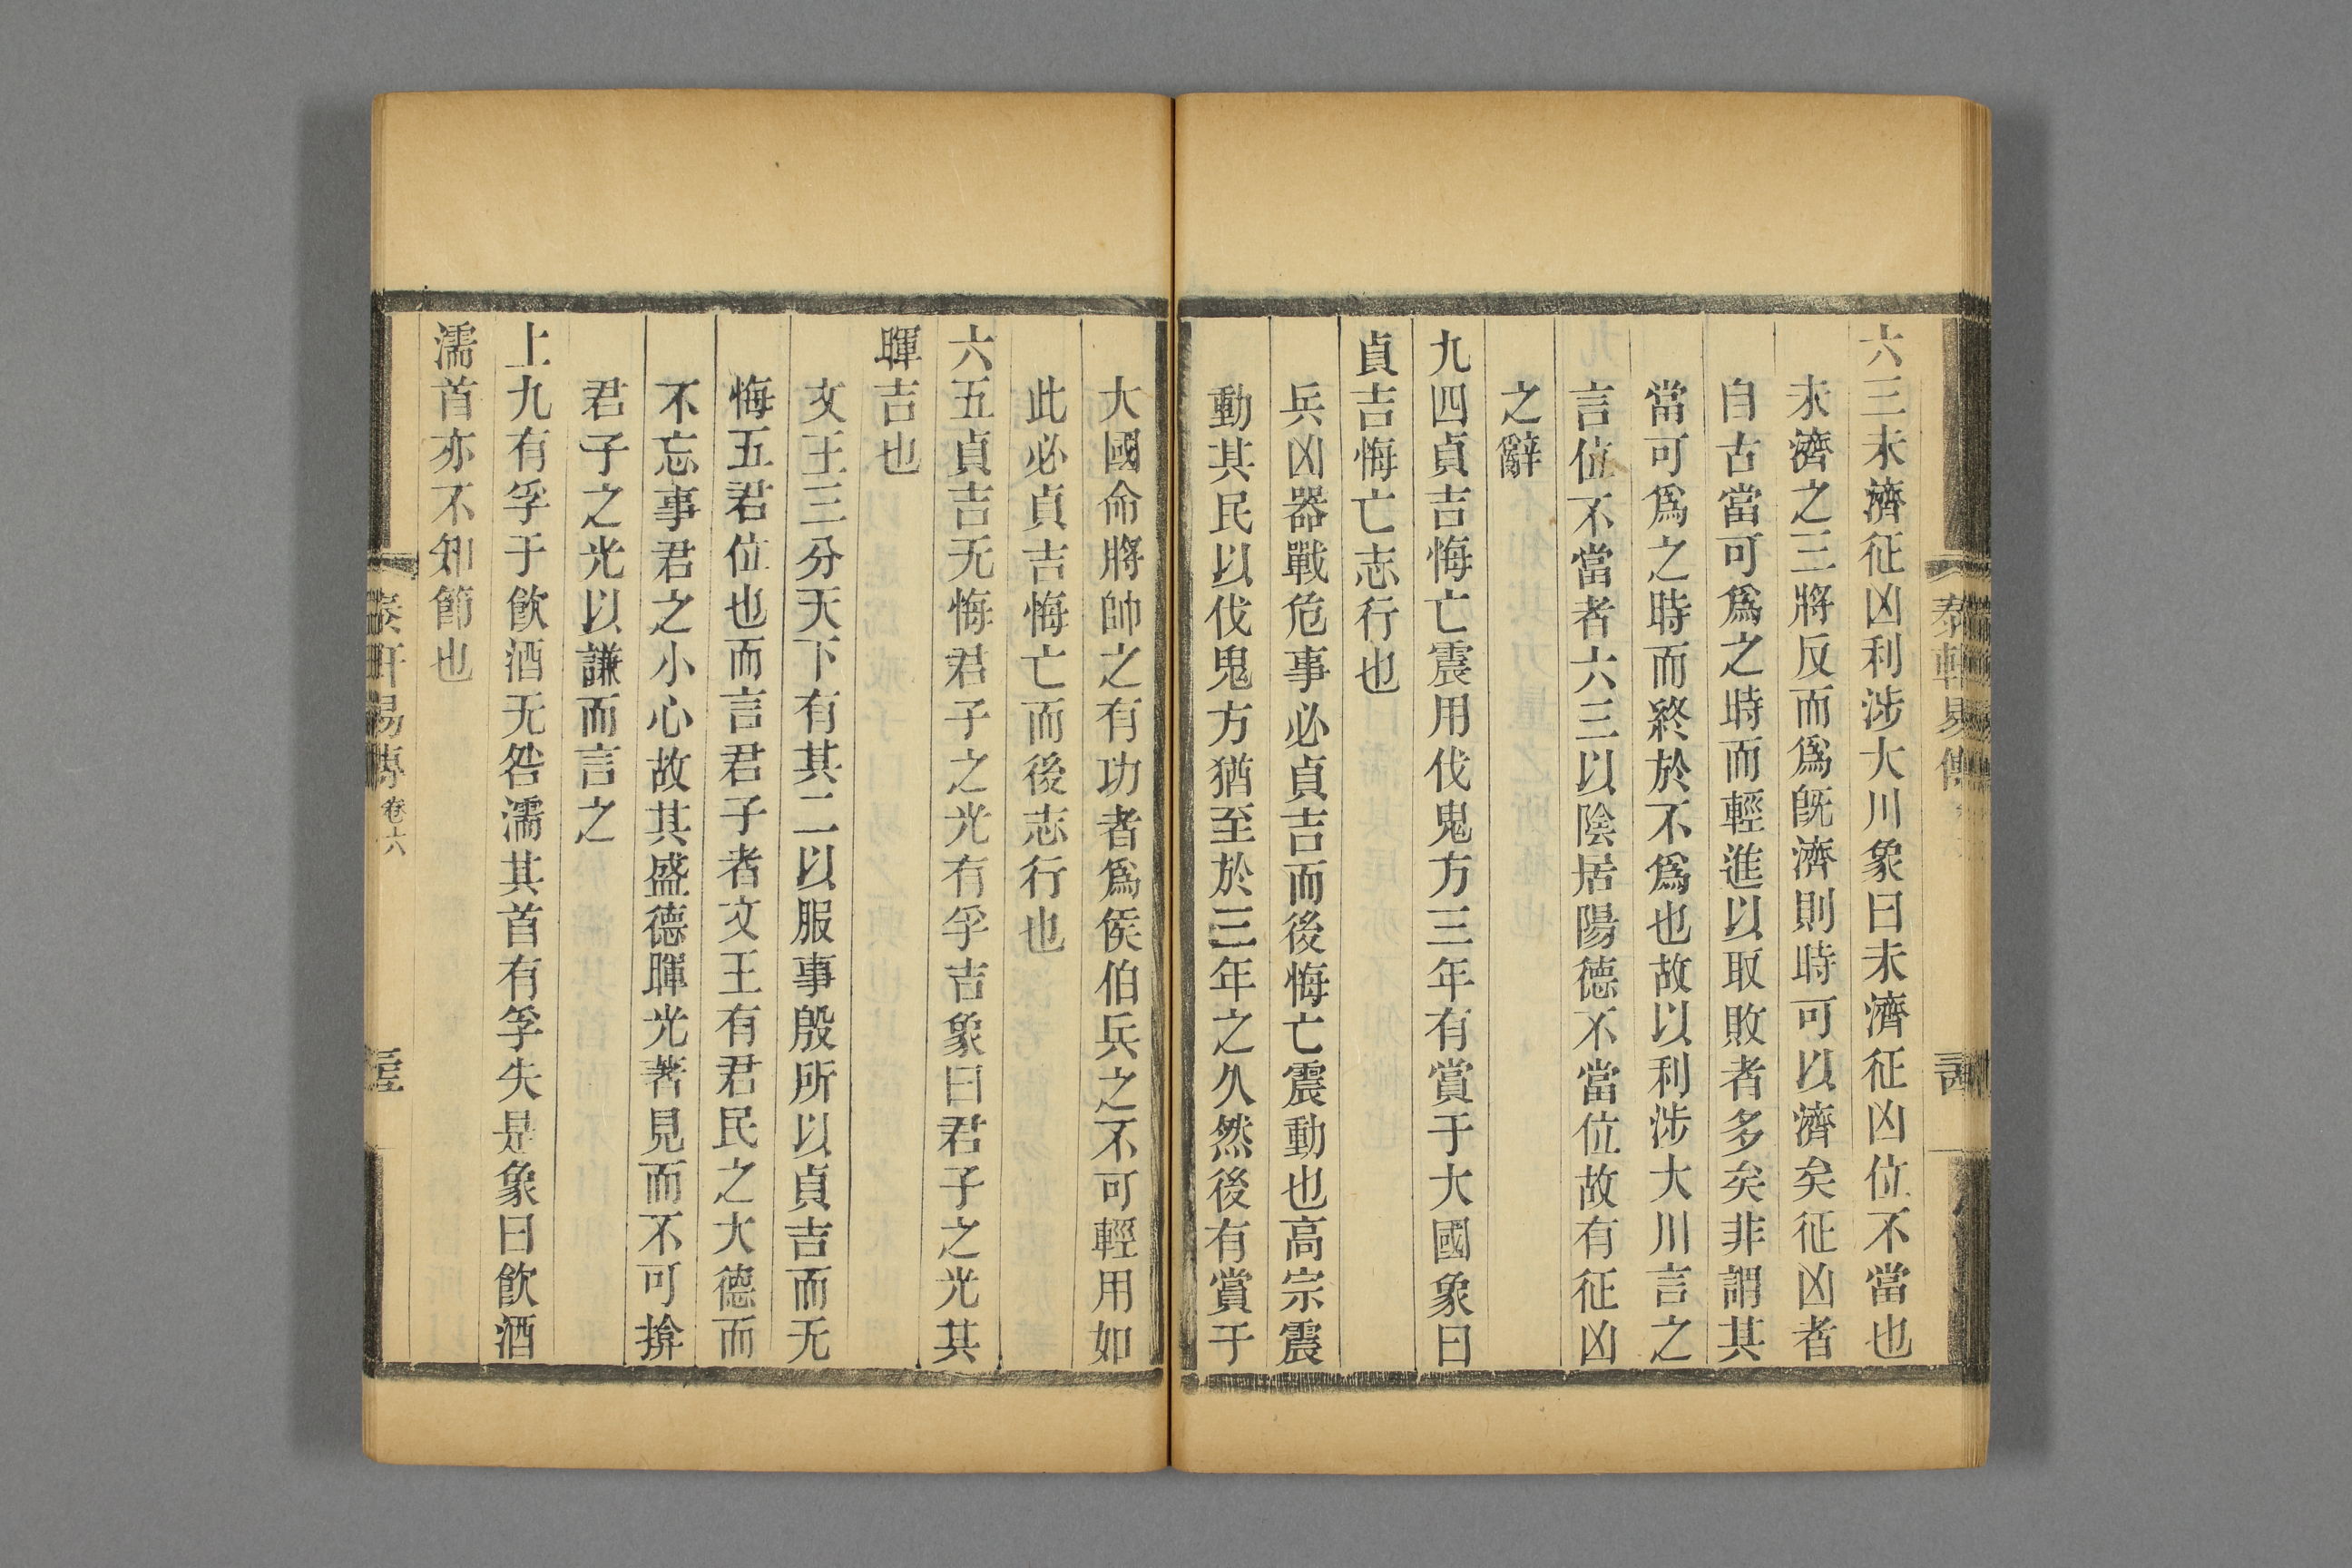 六三未濟征凶利涉大川象曰未濟征凶位不當也
未濟之三將反而爲旣濟則時可以濟矣征凶者
自古當可爲之時而輕進以取敗者多矣非謂其
當可爲之時而終於不爲也故以利涉大川言之
言位不當者六三以陰居陽德不當位故有征凶
之辭
九四貞吉悔亡震用伐鬼方三年有賞于大國象曰
貞吉悔亡志行也
兵凶器戰危事必貞吉而後悔亡震動也高宗震
動其民以伐鬼方猶至於三年之久然後有賞于
大國命將帥之有功者爲侯伯兵之不可輕用如
此必貞吉悔亡而後志行也
六五貞吉无悔君子之光有孚吉象曰君子之光其
暉吉也
文王三分天下有其二以服事殷所以貞吉而无
悔五君位也而言君子者文王有君民之大德而
不忘事君之小心故其盛德暉光著見而不可揜
君子之光以謙而言之
上九有孚于飮酒无咎濡其首有孚失是象曰飮酒
濡首亦不知節也
泰軒易傳 卷六